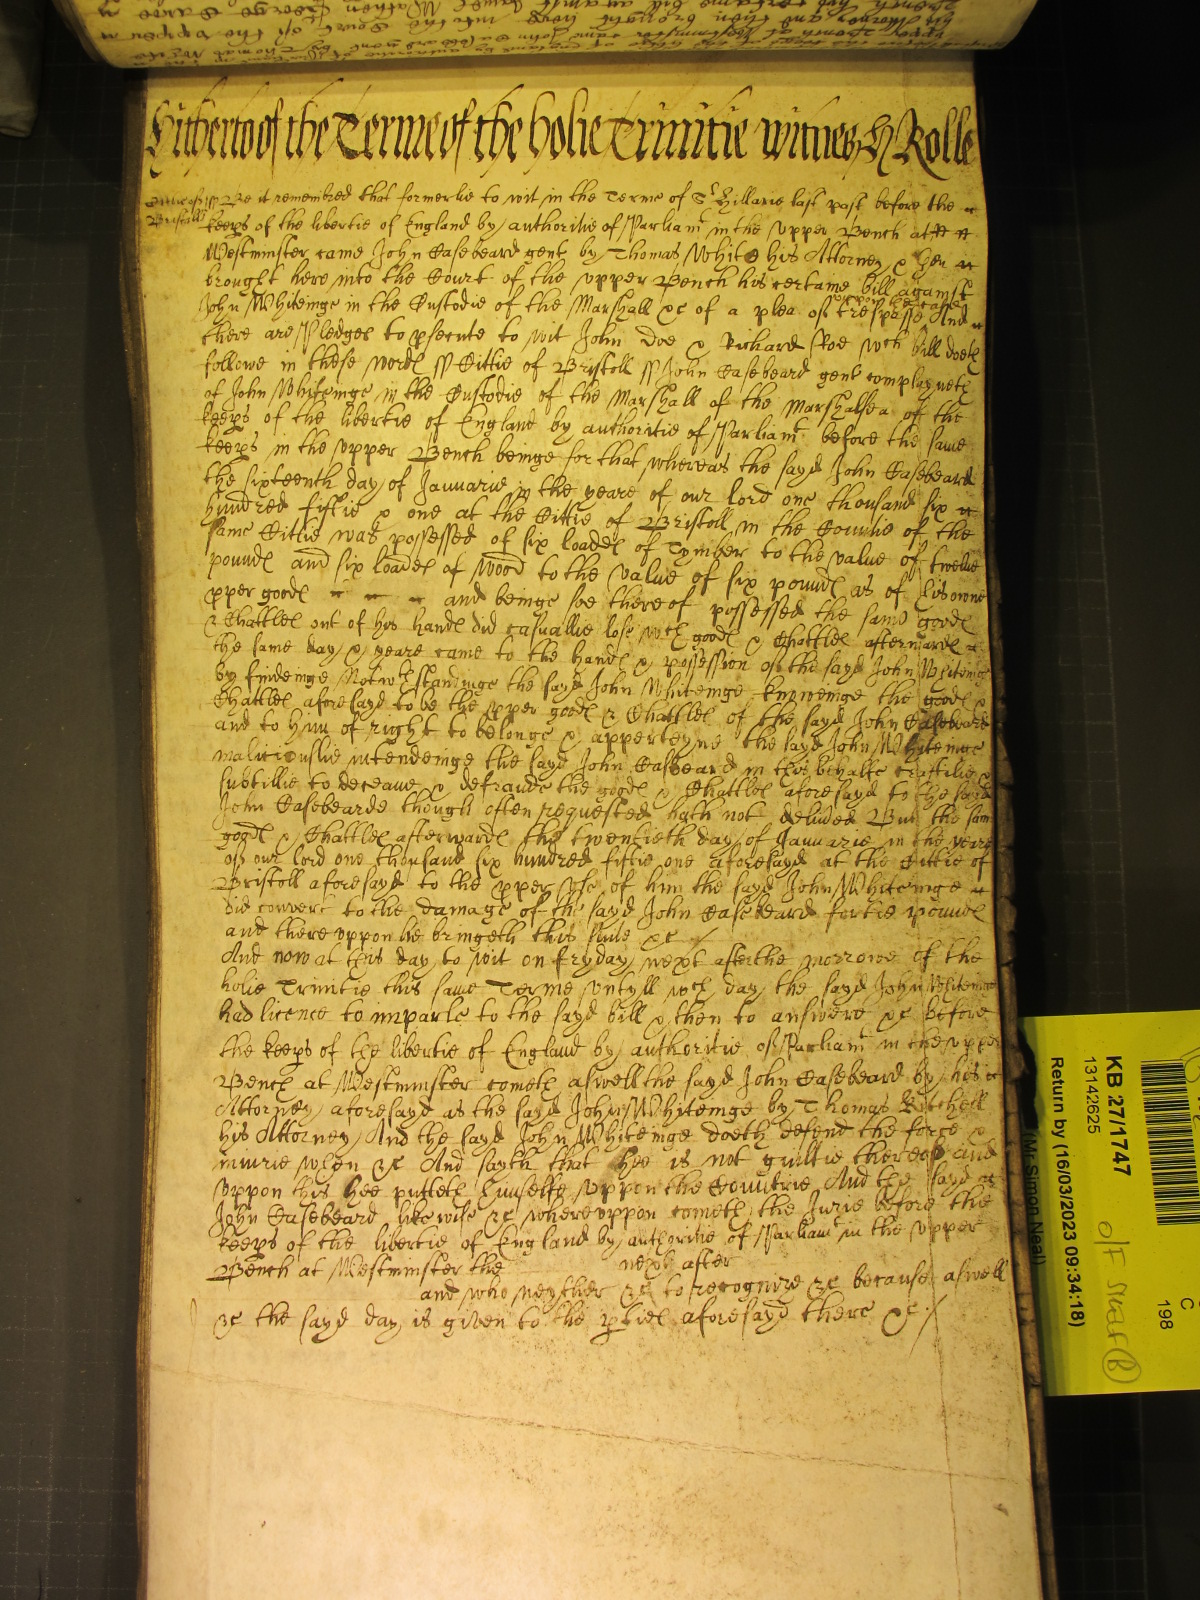 Hitherto of the Terme of the holie Trinitie witnes H Rolle
Cittie of Bristoll ss Be it remembred that formerlie to wit in the Terme of St Hillarie last past before the
keeps of the libertie of England by authoritie of Parliamt in the upper Bench att
Westminster came John Casebeard gent by Thomas White his Attorney &
brought here into the Court of the upper Bench his certaine bill against
John Whiteinge in the Custodie of the Marshall &c of a plea of trespasse upon the case And
there are Pledges to psecute to wit John Doe & Richard Roe wch bill doeth
followe in these words ss Cittie of Bristoll ss John Casebeard gent complayneth
of John Whiteinge in the Custodie of the Marshall of the Marshalsea of the
keeps of the libertie of England by authoritie of Parliamt before the same
keeps in the upper Bench beinge for that whereas the sayd John Casebeard
the sixteenth day of Januarie in the yeare of our lord one thousand six
hundred fiftie & one at the Cittie of Bristoll in the Countie of the
same Cittie was possessed of six loades of Tymber to the value of twelve
pounds and six loades of wood to the value of six pounds as of his owne
pper goods and beinge soe thereof possessed the same goods
& Chattles out of his hands did casuallie lose wch goods & Chattles afterwards
the same day & yeare came to the hands & possession of the sayd John Whiteinge
by findeinge Notwthstandinge the sayd John Whiteinge knoweinge the goods &
Chattles aforesayd to be the pper goods & Chattles of the sayd John Casebeard
and to him of right to belonge & apperteyne the sayd John Whiteinge
maliciouslie intendeinge the sayd John Casbeard in this behalfe craftilie &
subtillie to deceave & defraude the goods & Chattles aforesayd to the sayd
John Casebearde though often requested hath not delived But the same
goods & Chattles afterwards the twentieth day of Januarie in the yeare
of our lord one thousand six hundred fiftie one aforesayd at the Cittie of
Bristoll aforesayd to the pper use of him the sayd John Whiteinge
did convert to the damage of the sayd John Casebeard fortie pounds
and thereuppon he bringeth this suite &c
And now at this day to wit on fryday next after the morrowe of the
holie Trinitie this same Terme untyll wch day the sayd John Whiteinge
had licence to imparle to the sayd bill & then to answere &c before
the keeps of the libertie of England by authoritie of Parliamt in the upper
Bench at Westminster cometh aswell the sayd John Casebeard by his
Attorney aforesayd as the sayd John Whiteinge by Thomas
his Attorney And the sayd John Whiteinge doeth defend the force &
iniurie when &c And sayth that hee is not guiltie thereof and
uppon this hee putteth himselfe uppon the Countrie And the sayd
John Casebeard likewise &c whereuppon cometh the Jurie before the
keeps of the libertie of England by authoritie of Parliamt in the upper
Bench at Westminster the next after
and who neyther &c to recognize &c because aswell
&c the sayd day is given to the pties aforesayd there &c
KB 27/1747
13142625
Return by (16/03/2023 09:34:18)
(Mr. Simon Neal)
C
198